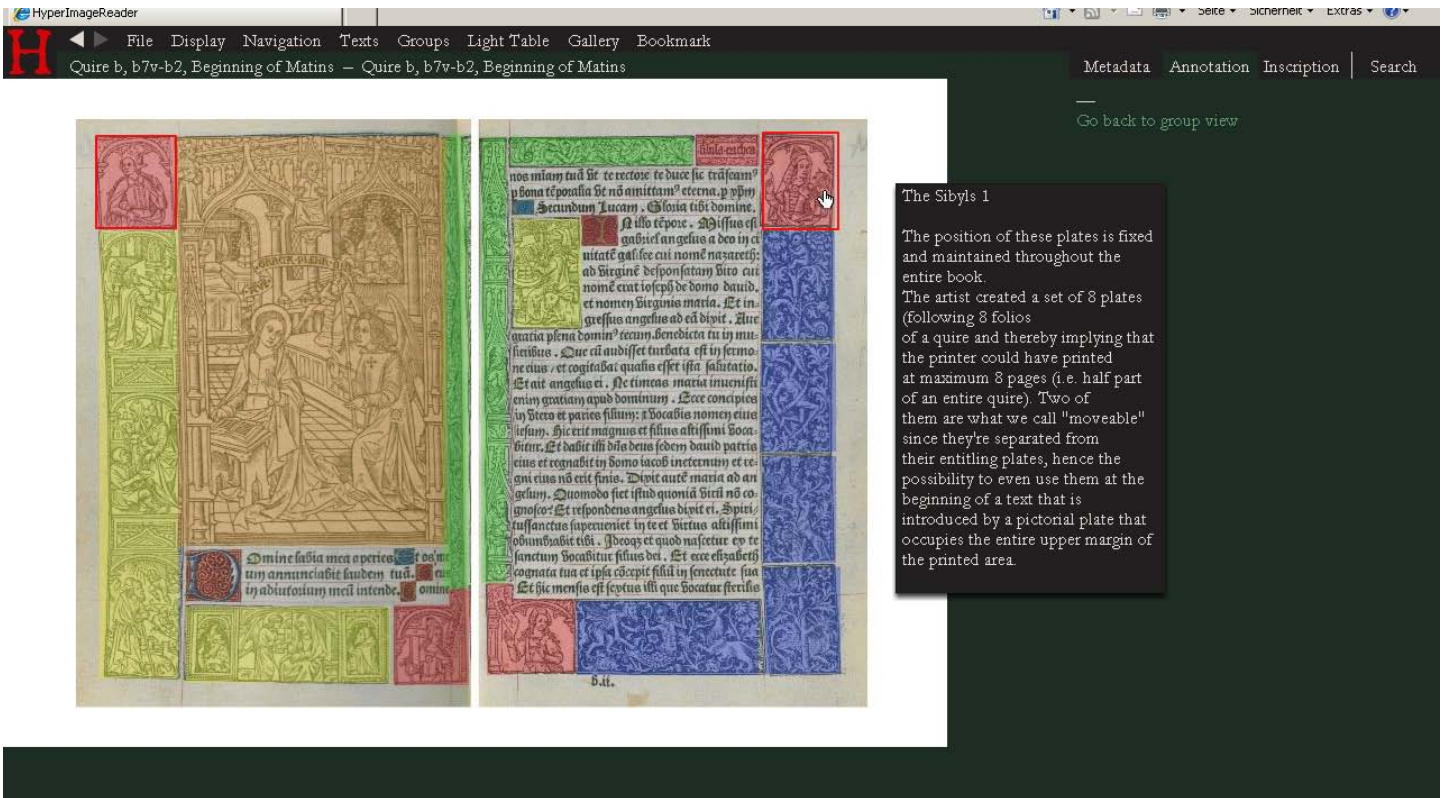 HyperImageReader
Seite Sicherheit Extras
File Display Navigation Texts Groups Light Table Gallery Bookmark
Quire b, b7v-b2, Beginning of Matins – Quire b, b7v-b2, Beginning of Matins
Metadata Annotation Inscription Search
Go back to group view
The Sibyls 1
The position of these plates is fixed
and maintained throughout the
entire book.
The artist created a set of 8 plates
(following 8 folios
of a quire and thereby implying that
the printer could have printed
at maximum 8 pages (i.e. half part
of an entire quire). Two of
them are what we call "moveable"
since they're separated from
their entitling plates, hence the
possibility to even use them at the
beginning of a text that is
introduced by a pictorial plate that
occupies the entire upper margin of
the printed area.
Domine labia mea aperies
um annunciabit laudem tuã.
in adiutorium meũ intende. omine
nos miam tuã vt te rectore te duce sic trãseamꝰ
bona tẽporalia vt nõ amittamꝰ eterna. p xpm
Secundum Lucam. Gloria tibi domine.
N illo tẽpore. Missus est
gabriel angelus a deo in ci
uitatẽ galilee cui nomẽ nazareth:
ad virginẽ desponsatam viro cui
nomẽ erat ioseph de domo dauid,
et nomen virginis maria. Et in-
gressus angelus ad eã dixit. Aue
gratia plena dominꝰ tecum. benedicta tu in mu-
lieribus. Que cũ audisset turbata est in sermo
ne eius et cogitabat qualis esset ista salutatio.
Et ait angelus ei. Ne timeas maria inuenisti
enim gratiam apud dominum. Ecce concipies
in vtero et paries filium: vocabis nomen eius
iesum. Hic erit magnus et filius altissimi voca-
bitur. Et dabit illi dñs deus sedem dauid patris
eius et regnabit in domo iacob ineternum et re-
gni eius nõ erit finis. Dixit autẽ maria ad an
gelum. Quomodo fiet istud quoniã virũ nõ co-
gnosco: Et respondens angelus dixit ei. Spiri/
tussanctus superueniet in te et virtus altissimi
obumbrabit tibi. et quod nascetur ex te
sanctum vocabitur filius dei. Et ecce elizabeth
cognata tua et ipsa cõcepit filiũ in senectute sua
Et hic mensis est sextus illi que vocatur sterilis
b.ii.